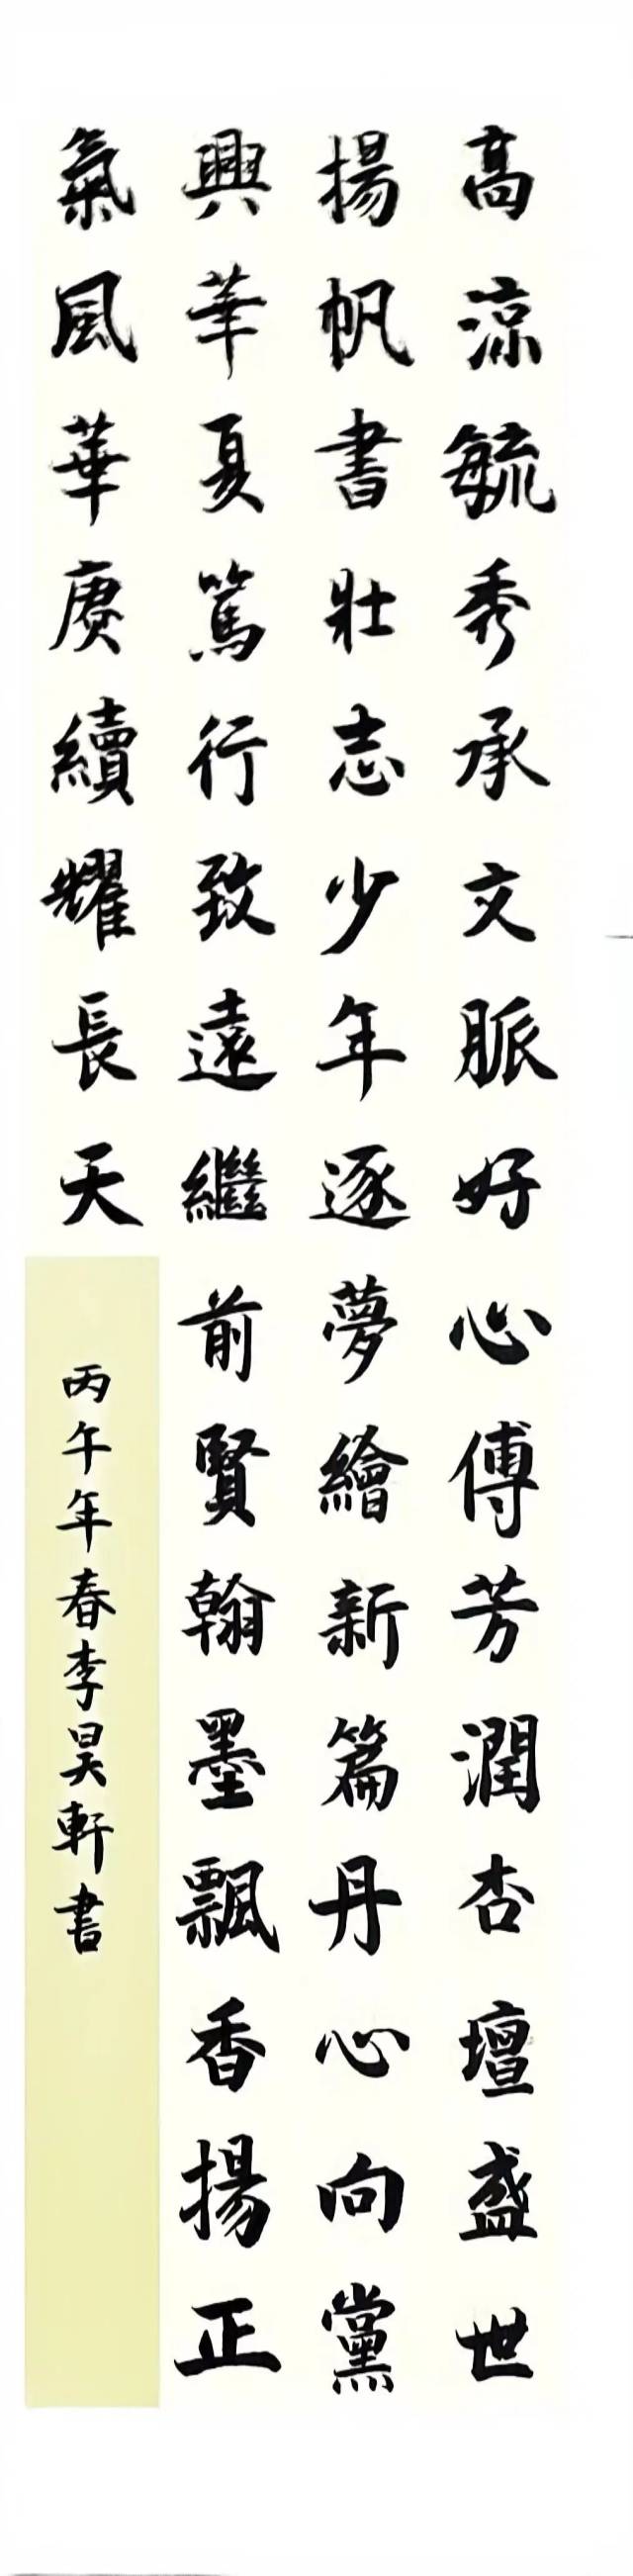 高涼毓秀承文脈好心傅芳潤杏壇盛世
揚帆書壯志少年逐夢繪新篇丹心向黨
興華夏篤行致遠繼前賢翰墨飄香揚正
氣風華賡續耀長天
丙午年春李昊軒書